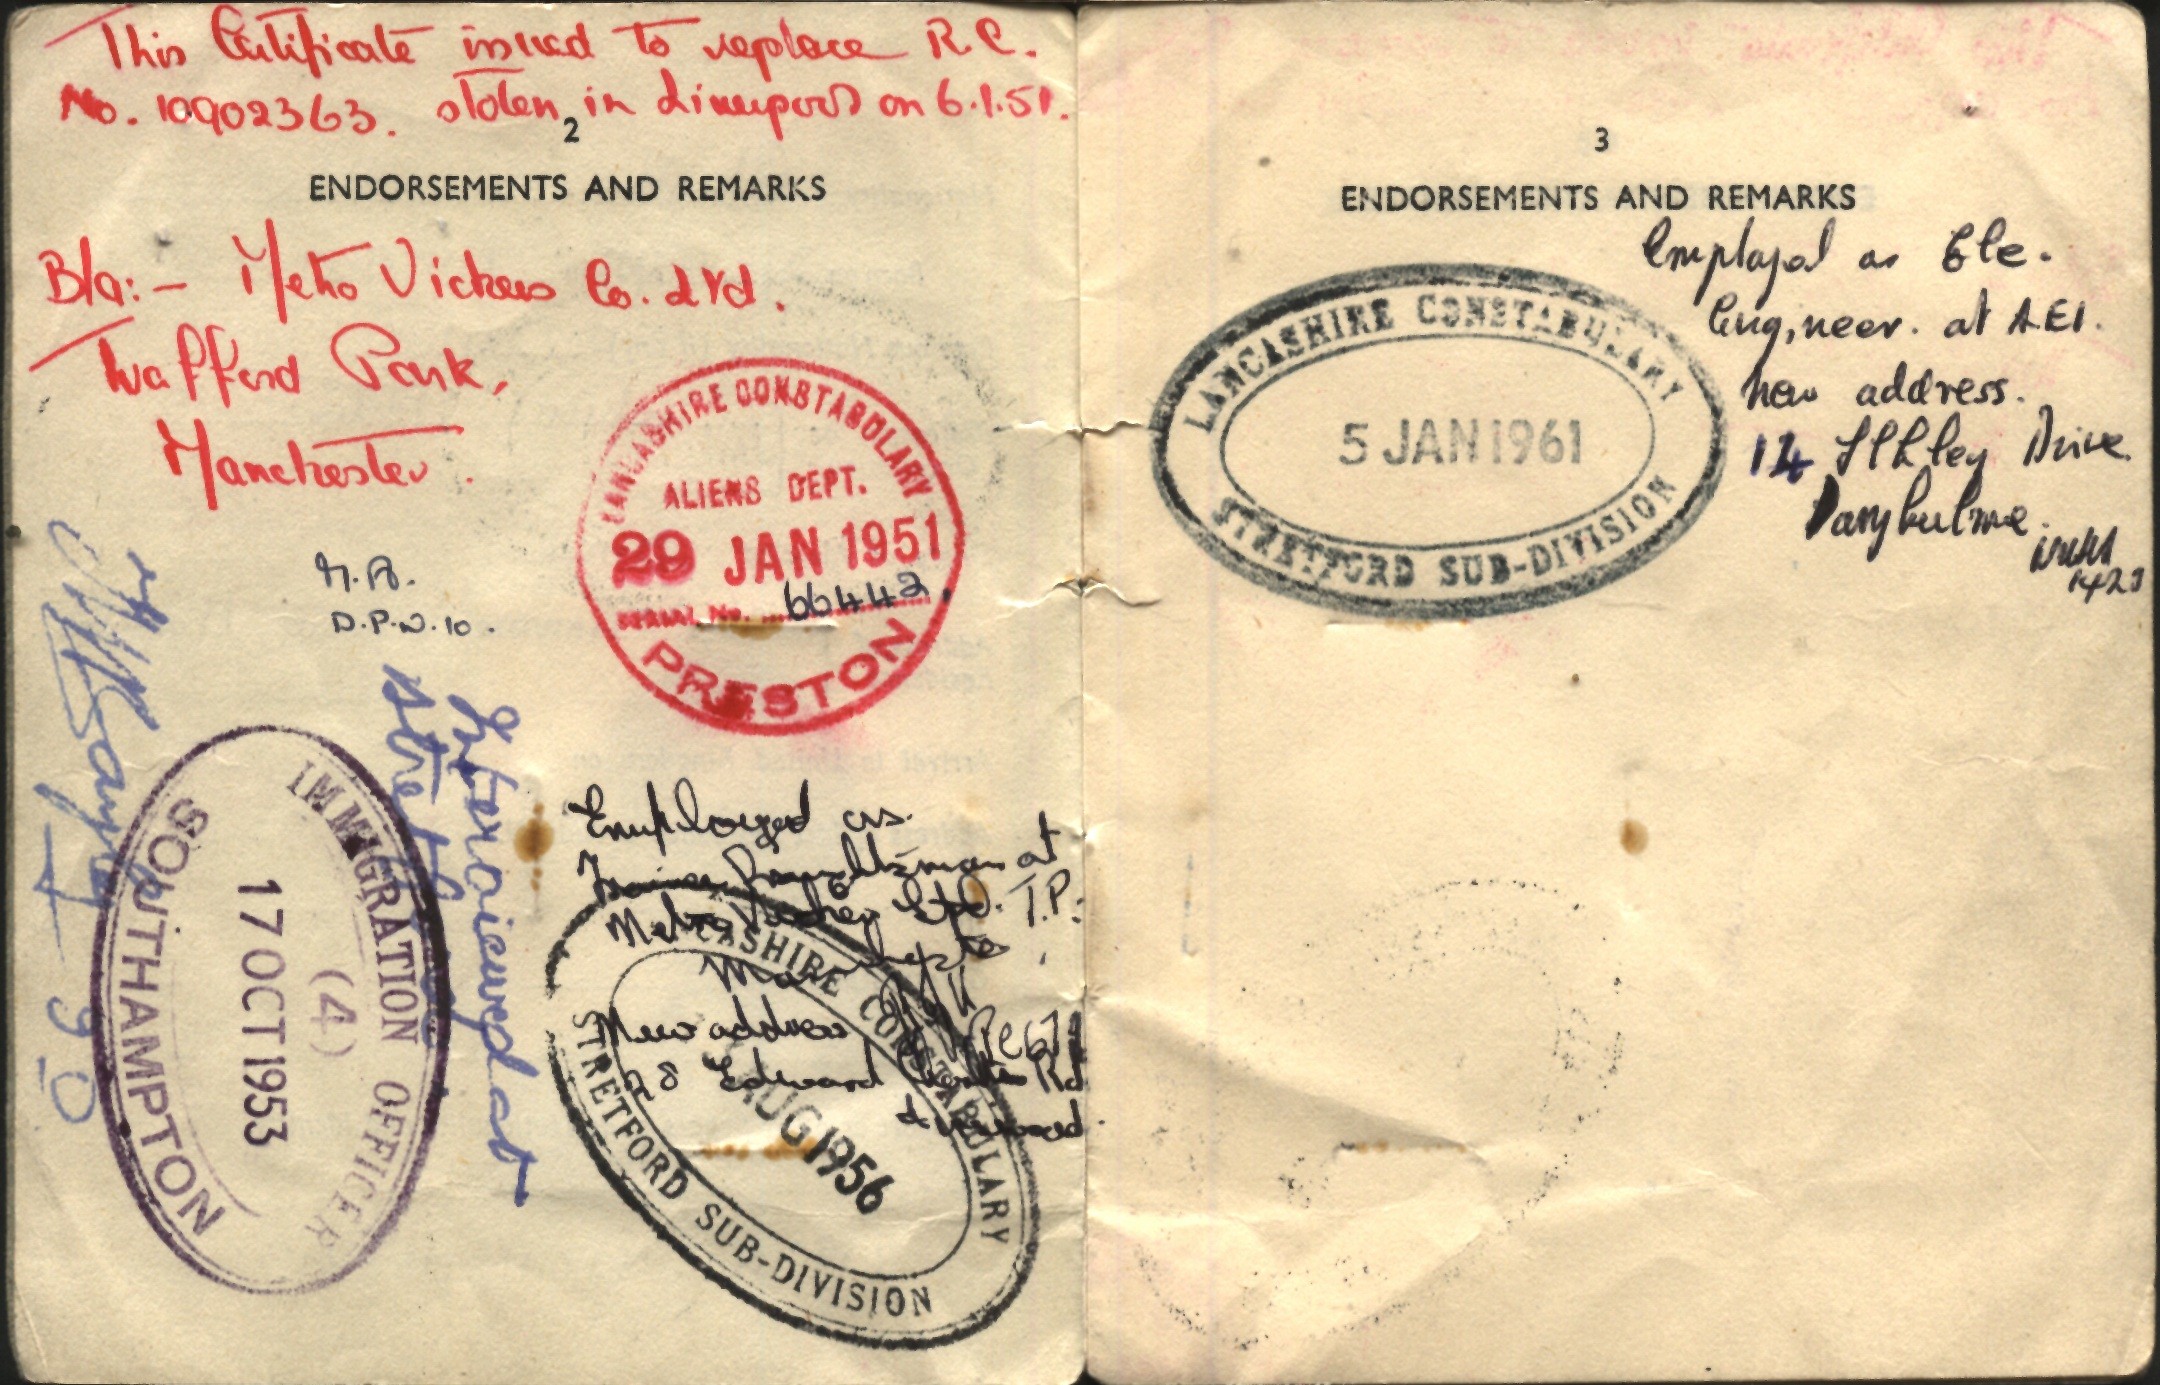 This Certificate issued to replace R.C.
No. 10902363. stolen in Liverpool on 6.1.51.
2
ENDORSEMENTS AND REMARKS
B/a:- Metro Vickers Co. Ltd.
Trafford Park,
Manchester.
LANCASHIRE CONSTABULARY
ALIENS DEPT.
29 JAN 1951
SERIAL No. 66442.
PRESTON
D.P.N.10.
Interviewed at
IMMIGRATION OFFICER
(4)
17 OCT 1953
SOUTHAMPTON
Employed as.
Draughtsman at
Metro Vickers Ltd. T.P.
New address
28 Edward Rd
LANCASHIRE CONSTABULARY
AUG 1956
STRETFORD SUB-DIVISION
3
ENDORSEMENTS AND REMARKS
LANCASHIRE CONSTABULARY
5 JAN 1961
STRETFORD SUB-DIVISION
Employed as Ele.
Engineer. at A.E.I.
New address.
14 Ilkley Drive
Davyhulme.
1423